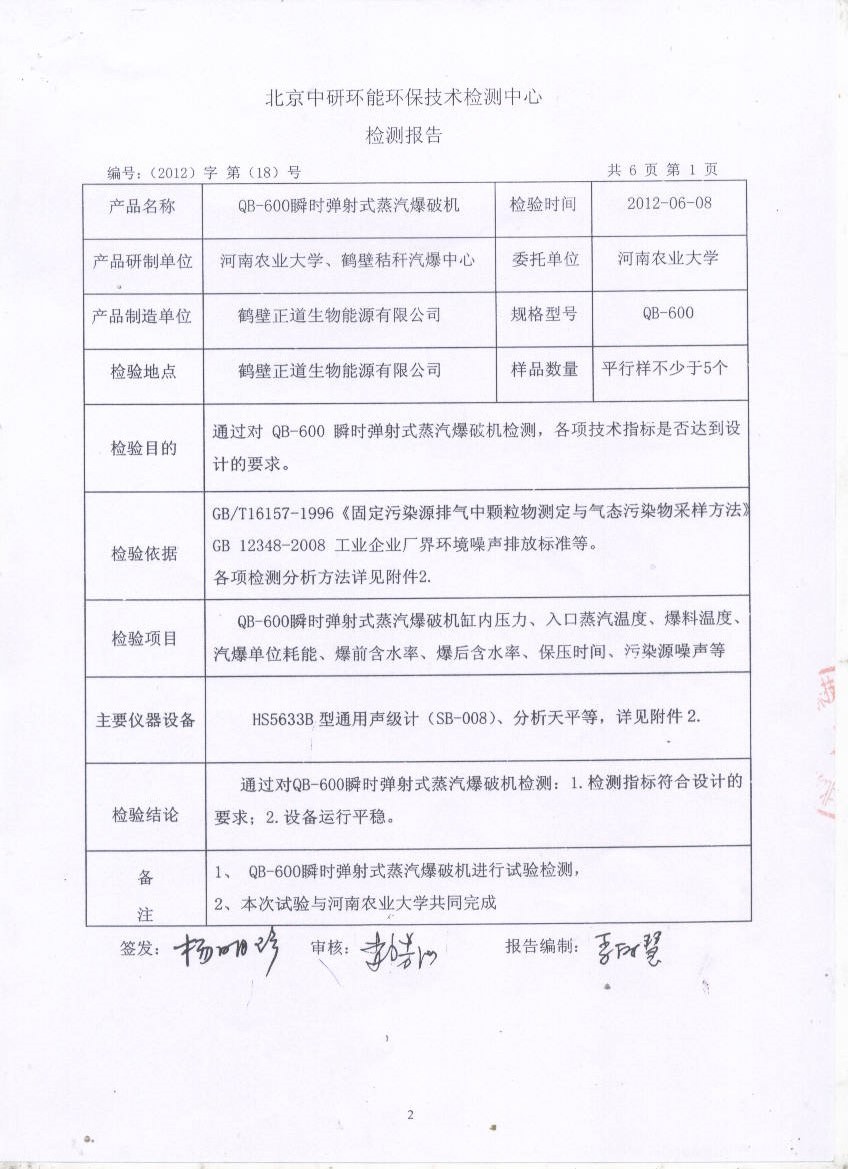 北京中研环能环保技术检测中心
检测报告
编号：（2012）字 第（18）号 共 6 页 第 1 页
产品名称 QB-600瞬时弹射式蒸汽爆破机 检验时间 2012-06-08
产品研制单位 河南农业大学、鹤壁秸秆汽爆中心 委托单位 河南农业大学
产品制造单位 鹤壁正道生物能源有限公司 规格型号 QB-600
检验地点 鹤壁正道生物能源有限公司 样品数量 平行样不少于5个
检验目的
通过对 QB-600 瞬时弹射式蒸汽爆破机检测，各项技术指标是否达到设
计的要求。
检验依据
GB/T16157-1996《固定污染源排气中颗粒物测定与气态污染物采样方法》
GB 12348-2008 工业企业厂界环境噪声排放标准等。
各项检测分析方法详见附件2.
检验项目
QB-600瞬时弹射式蒸汽爆破机缸内压力、入口蒸汽温度、爆料温度、
汽爆单位耗能、爆前含水率、爆后含水率、保压时间、污染源噪声等
主要仪器设备 HS5633B 型通用声级计（SB-008）、分析天平等，详见附件 2.
检验结论
通过对QB-600瞬时弹射式蒸汽爆破机检测：1.检测指标符合设计的
要求；2.设备运行平稳。
备
注
1、 QB-600瞬时弹射式蒸汽爆破机进行试验检测，
2、本次试验与河南农业大学共同完成
签发： 杨明珍 审核： 报告编制：
2